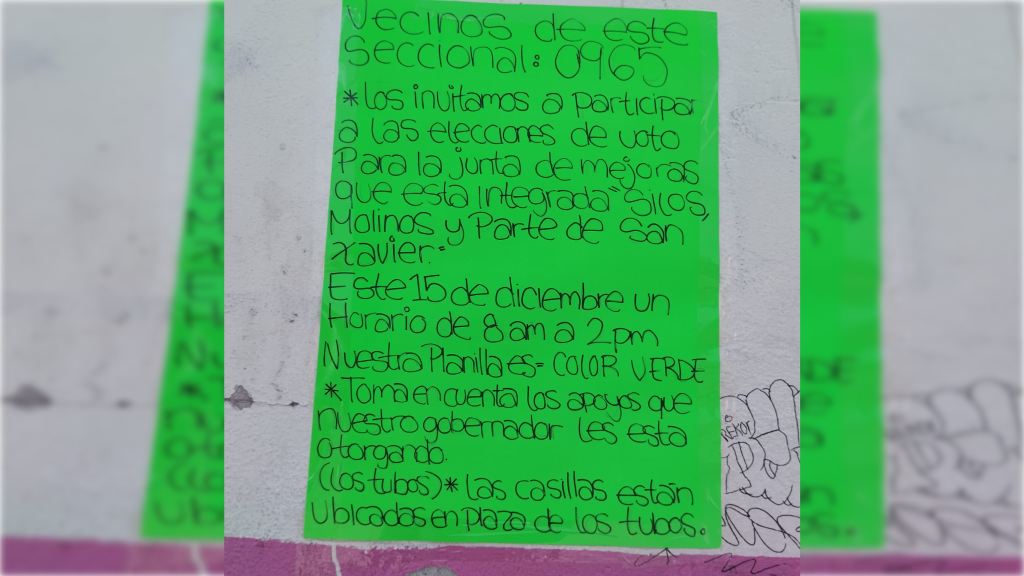 Vecinos de este
seccional: 0965
*Los invitamos a participar
a las elecciones de voto
Para la junta de mejoras
que esta integrada "Silos,
Molinos y Parte de San
Xavier."
Este 15 de diciembre un
Horario de 8 am a 2 pm
Nuestra Planilla es= COLOR VERDE
*Toma en cuenta los apoyos que
nuestro gobernador les esta
otorgando.
(Los tubos)* Las casillas están
Ubicadas en Plaza de los tubos.